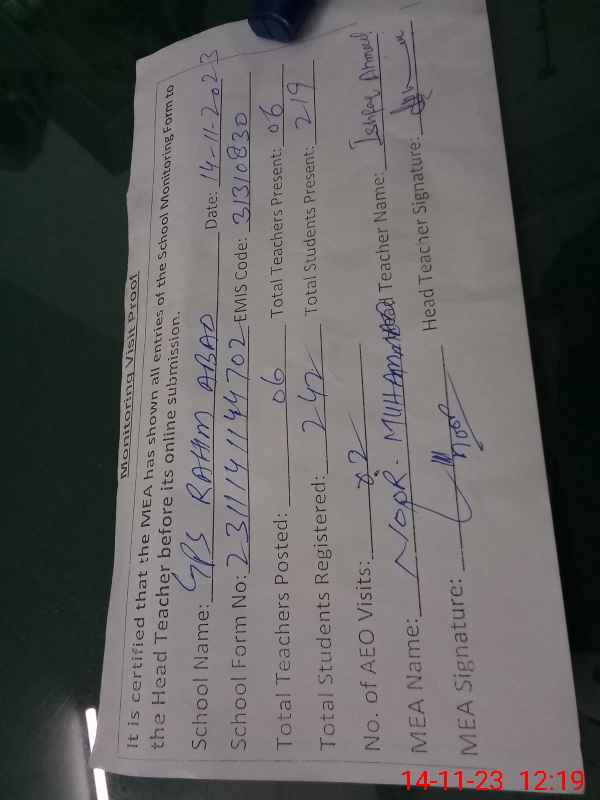 Monitoring Visit Proof
It is certified that the MEA has shown all entries of the School Monitoring Form to
the Head Teacher before its online submission.
School Name: GPS RAHIM ABAD Date: 14-11-2023
School Form No: 231114114470 2 EMIS Code: 31310830
Total Teachers Posted: 06 Total Teachers Present: 06
Total Students Registered: 242 Total Students Present: 219
No. of AEO Visits: 02
MEA Name: NOOR MUHAMMAD Head Teacher Name: Ishfaq Ahmed
MEA Signature: Noor Head Teacher Signature:
14-11-23 12:19